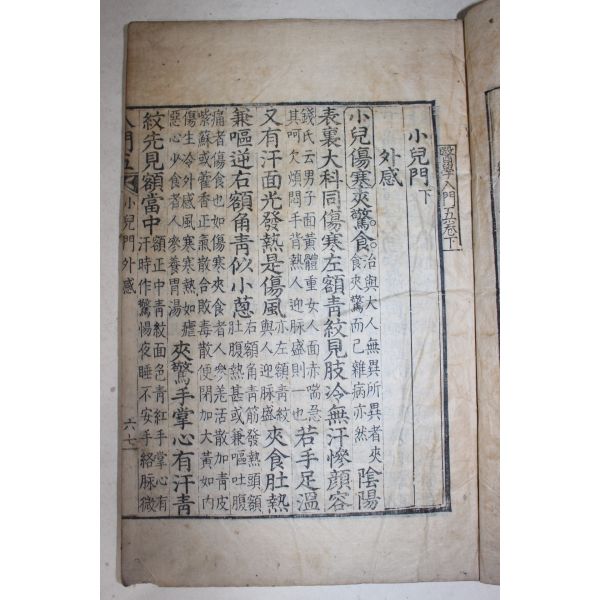 醫學入門五卷下
小兒門下
外感
小兒傷寒夾驚食 治與大人無異所異者夾
食夾驚而已雜病亦然 陰陽
表裏大科同傷寒左額靑紋見肢冷無汗慘顏容
錢氏云男子面黃體重女人面赤喘急
其呵欠煩悶手背熱人迎脉盛則一也 若手足溫
又有汗面光發熱是傷風 亦左額靑紋
與人迎脉盛 夾食肚熱
兼嘔逆右額角靑似小蔥 右額角靑筋發熱頭額
肚腹熱甚或兼嘔吐腹
痛者傷食也如傷寒夾食者人參羌活散加靑皮
紫蘇或藿香正氣散合敗毒散便閉加大黃如內
傷生冷外感風寒寒熱如瘧
惡心少食者人參養胃湯 夾驚手掌心有汗靑
紋先見額當中 額正中靑紋面色靑紅手掌心有
汗時作驚惕夜睡不安手絡脉微
入門五 小兒門外感 六七